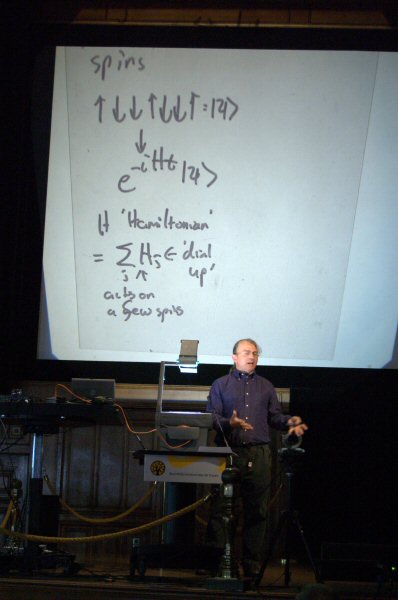 spins
↑↓↓↑↓↓↑=|ψ>
↓
e^-iHt |ψ>
H 'Hamiltonian'
= ∑_j H_j ← 'dial up'
↑
acts on
a few spins